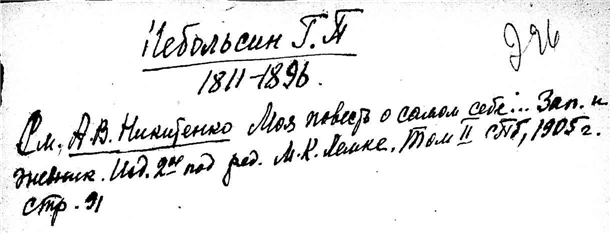 Небольсин Г.П.
1811-1896.
296
См. А.В. Никитенко Моя повесть о самом себе... Зап. и
дневник. Изд. 2ое под ред. М.К. Лемке. Том II СПб, 1905 г.
стр. 91